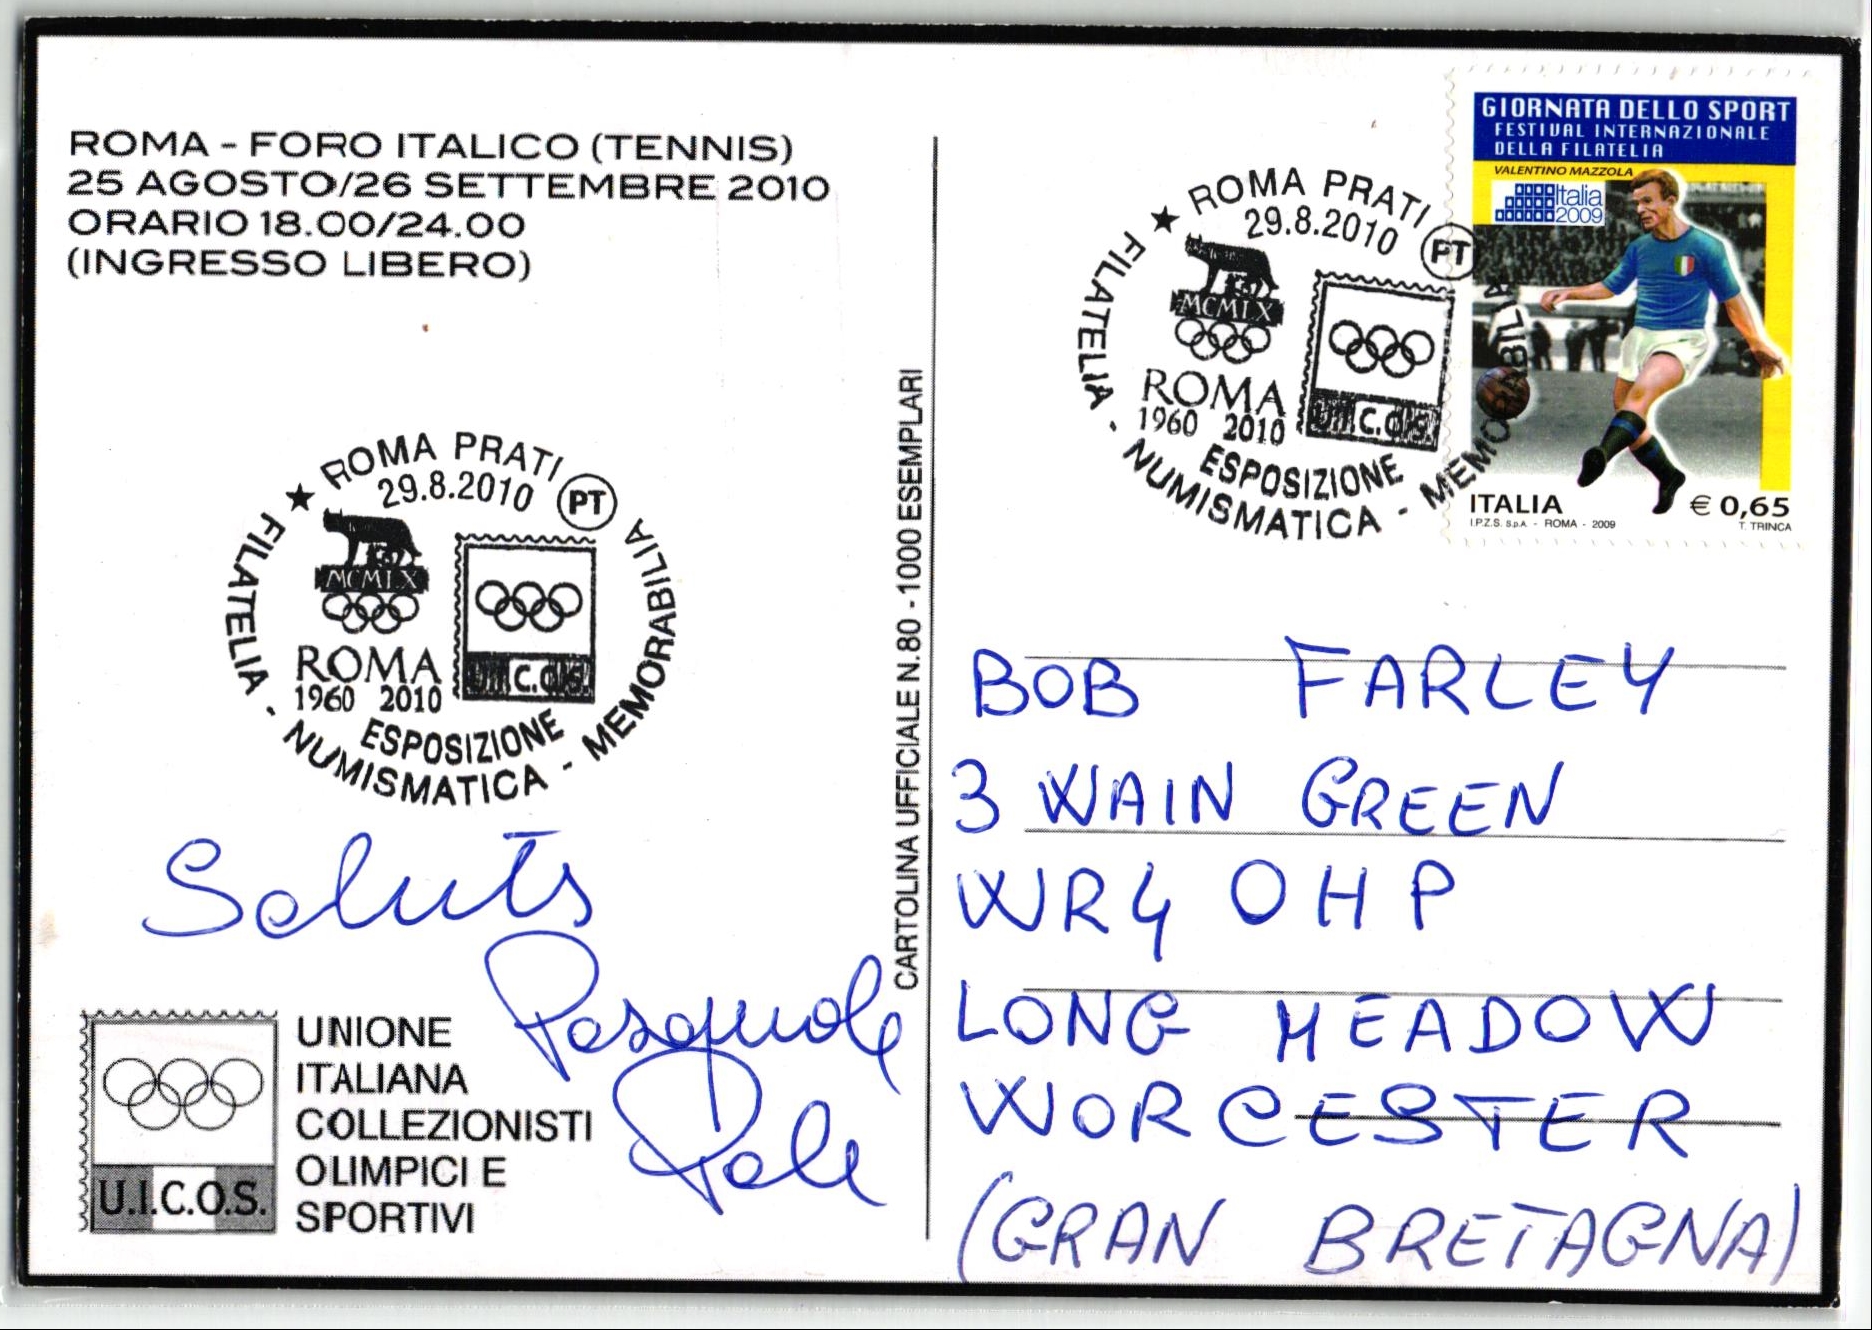 ROMA - FORO ITALICO (TENNIS)
25 AGOSTO/26 SETTEMBRE 2010
ORARIO 18.00/24.00
(INGRESSO LIBERO)
ROMA PRATI
29.8.2010
PT
MCMLX
ROMA
1960 2010
U.I.C.O.S.
ESPOSIZIONE
FILATELIA - NUMISMATICA - MEMORABILIA
Saluti
Pasquale
Pole
UNIONE
ITALIANA
COLLEZIONISTI
OLIMPICI E
SPORTIVI
U.I.C.O.S.
CARTOLINA UFFICIALE N.80 - 1000 ESEMPLARI
ROMA PRATI
29.8.2010
PT
MCMLX
ROMA
1960 2010
U.I.C.O.S.
ESPOSIZIONE
FILATELIA - NUMISMATICA - MEMORABILIA
GIORNATA DELLO SPORT
FESTIVAL INTERNAZIONALE
DELLA FILATELIA
VALENTINO MAZZOLA
Italia
2009
ITALIA € 0,65
I.P.Z.S. S.p.A. - ROMA - 2009 T. TRINCA
BOB FARLEY
3 WAIN GREEN
WR4 OHP
LONG MEADOW
WORCESTER
(GRAN BRETAGNA)